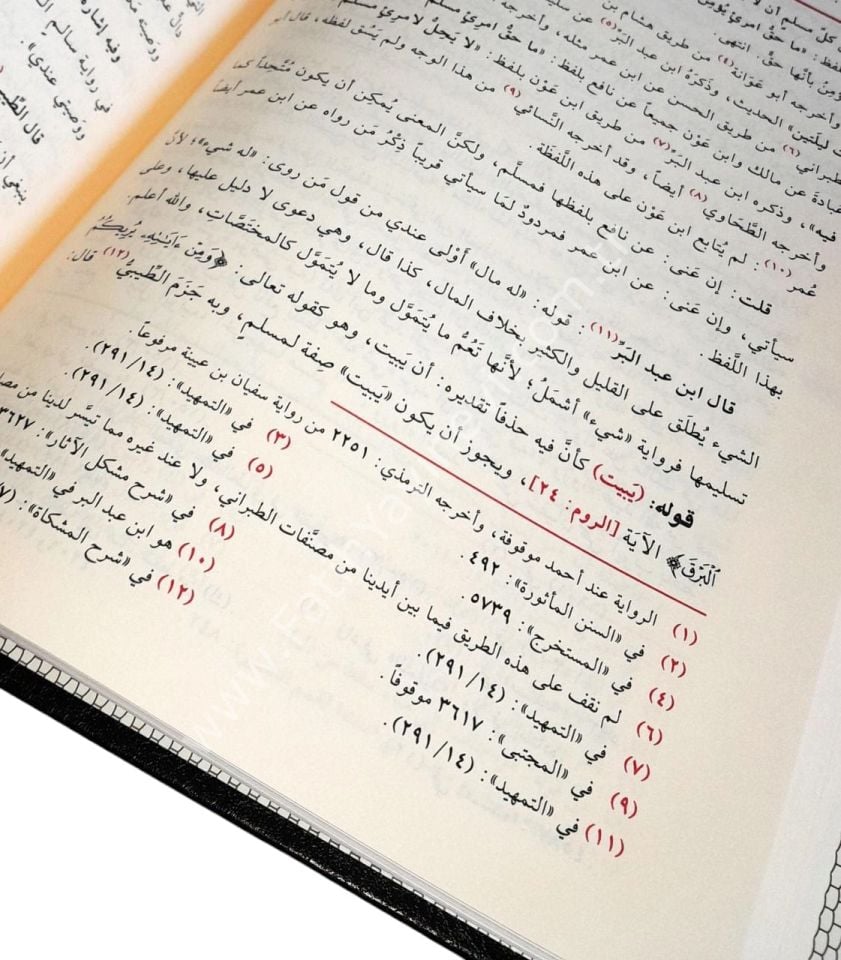 كلّ مسلم أن لا
بلفظ: «ما حقّ امرئ يُؤمِن
يُؤمِنُ بأنّها حقٌّ». انتهى.
وأخرجه أبو عَوَانة(٤) من طريق هشام بن
ليلتين» الحديث، وذكَرَهُ ابن عبد البَرّ(٥) عن
الطبراني(٦) من طريق الحسن عن ابن عمر مثله، وأخرجه
عن مالك وابن عَوْن جميعاً عن نافع بلفظ: «ما حقُّ امرئ مسلم
فيه»، وذكره ابن عبد البَرّ(٧) من طريق ابن عَوْن بلفظ: «لا يَحِلُّ لامرئ مسلم
وأخرجه الطَّحاوي(٨) أيضاً، وقد أخرجه النَّسائي(٩) من هذا الوجه ولم يَسُق لفظه، قال أبو
عُمر(١٠): لم يُتابع ابن عَوْن على هذه اللَّفظة.
قلت: إن عَنى: عن نافع بلفظها فمسلَّم، ولكنَّ المعنى يُمكِن أن يكون مُتَّحِداً كما
سيأتي، وإن عَنى: عن ابن عمر فمردودٌ لمَا سيأتي قريباً ذِكْرُ مَن رواه عن ابن عمر أيضاً
بهذا اللَّفظ.
قال ابن عبد البَرّ(١١): قوله: «له مال» أَوْلى عندي من قول مَن روى: «له شيء»؛ لأنّ
الشيء يُطلَق على القليل والكثير بخلاف المال، كذا قال، وهي دعوى لا دليل عليها، وعلى
تسليمها فرواية «شيء» أشملُ؛ لأنَّها تَعُمّ ما يُتَموَّل وما لا يُتَموَّل كالمختَصَّات، والله أعلم.
قوله: (يَبيت) كأنَّ فيه حذفاً تقديره: أن يَبيت، وهو كقوله تعالى: ﴿وَمِنْ ءَايَـٰتِهِۦ يُرِيكُمُ
ٱلْبَرْقَ﴾ الآيَة [الروم: ٢٤]، ويجوز أن يكون «يَبيت» صِفة لمسلمٍ، وبه جَزَمَ الطِّيبيُّ(١٢) قال:
(١) الرواية عند أحمد موقوفة، وأخرجه الترمذي: ٢٢٥١ من رواية سفيان بن عيينة مرفوعاً.
(٢) في «السنن المأثورة»: ٤٩٢. (٣) في «التمهيد»: (٢٩١/١٤).
(٤) في «المستخرج»: ٥٧٣٩. (٥) في «التمهيد»: (٢٩١/١٤).
(٦) لم نقف على هذه الطريق فيما بين أيدينا من مصنَّفات الطبراني، ولا عند غيره مما تيسَّر لدينا من
(٧) في «التمهيد»: (٢٩١/١٤). (٨) في «شرح مشكل الآثار»: ٣٦٢٧
(٩) في «المجتبى»: ٣٦١٧ موقوفاً. (١٠) هو ابن عبد البر في «التمهيد»
(١١) في «التمهيد»: (٢٩١/١٤). (١٢) في «شرح المشكاة»:
وفيه إشارة
في رواية سالم
ووَصِيتي عندي».
قال الطِّيبي
ينبغي أن